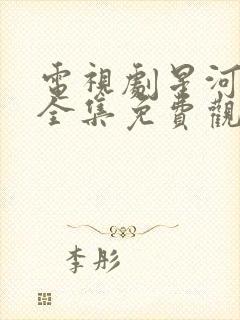 電視劇星河
全集免費觀
李彤